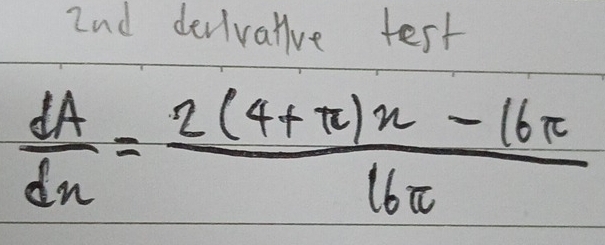 2nd derivative test
dA/dx = (2(4+π)x - 16π)/(16π)